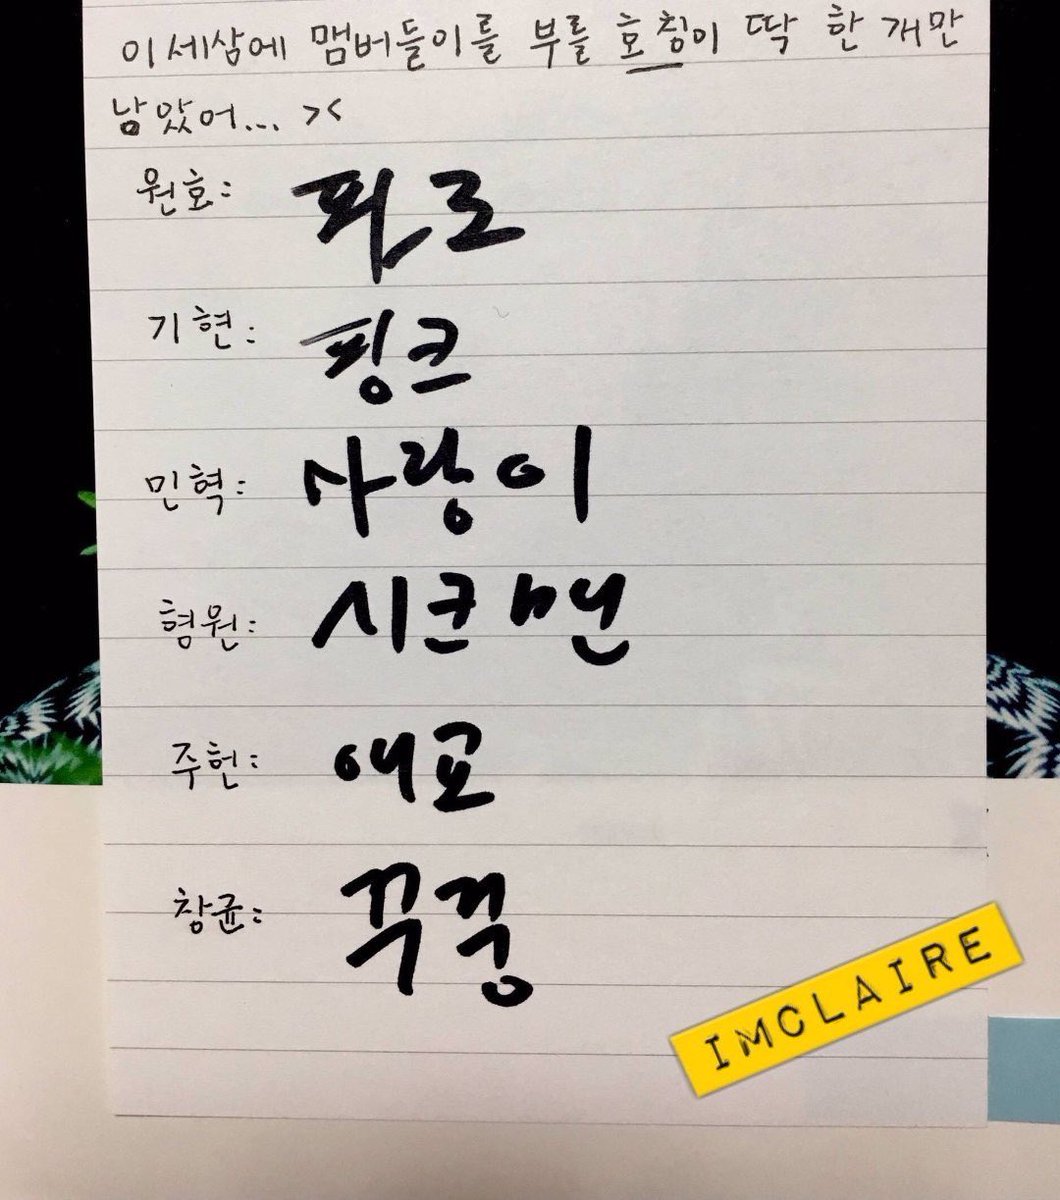 이세상에 맴버들이를 부를 호칭이 딱 한 개만
남았어... ><
원호: 피로
기현: 핑크
민혁: 사랑이
형원: 시크맨
주헌: 애교
창균: 꾸꿍
IMCLAIRE